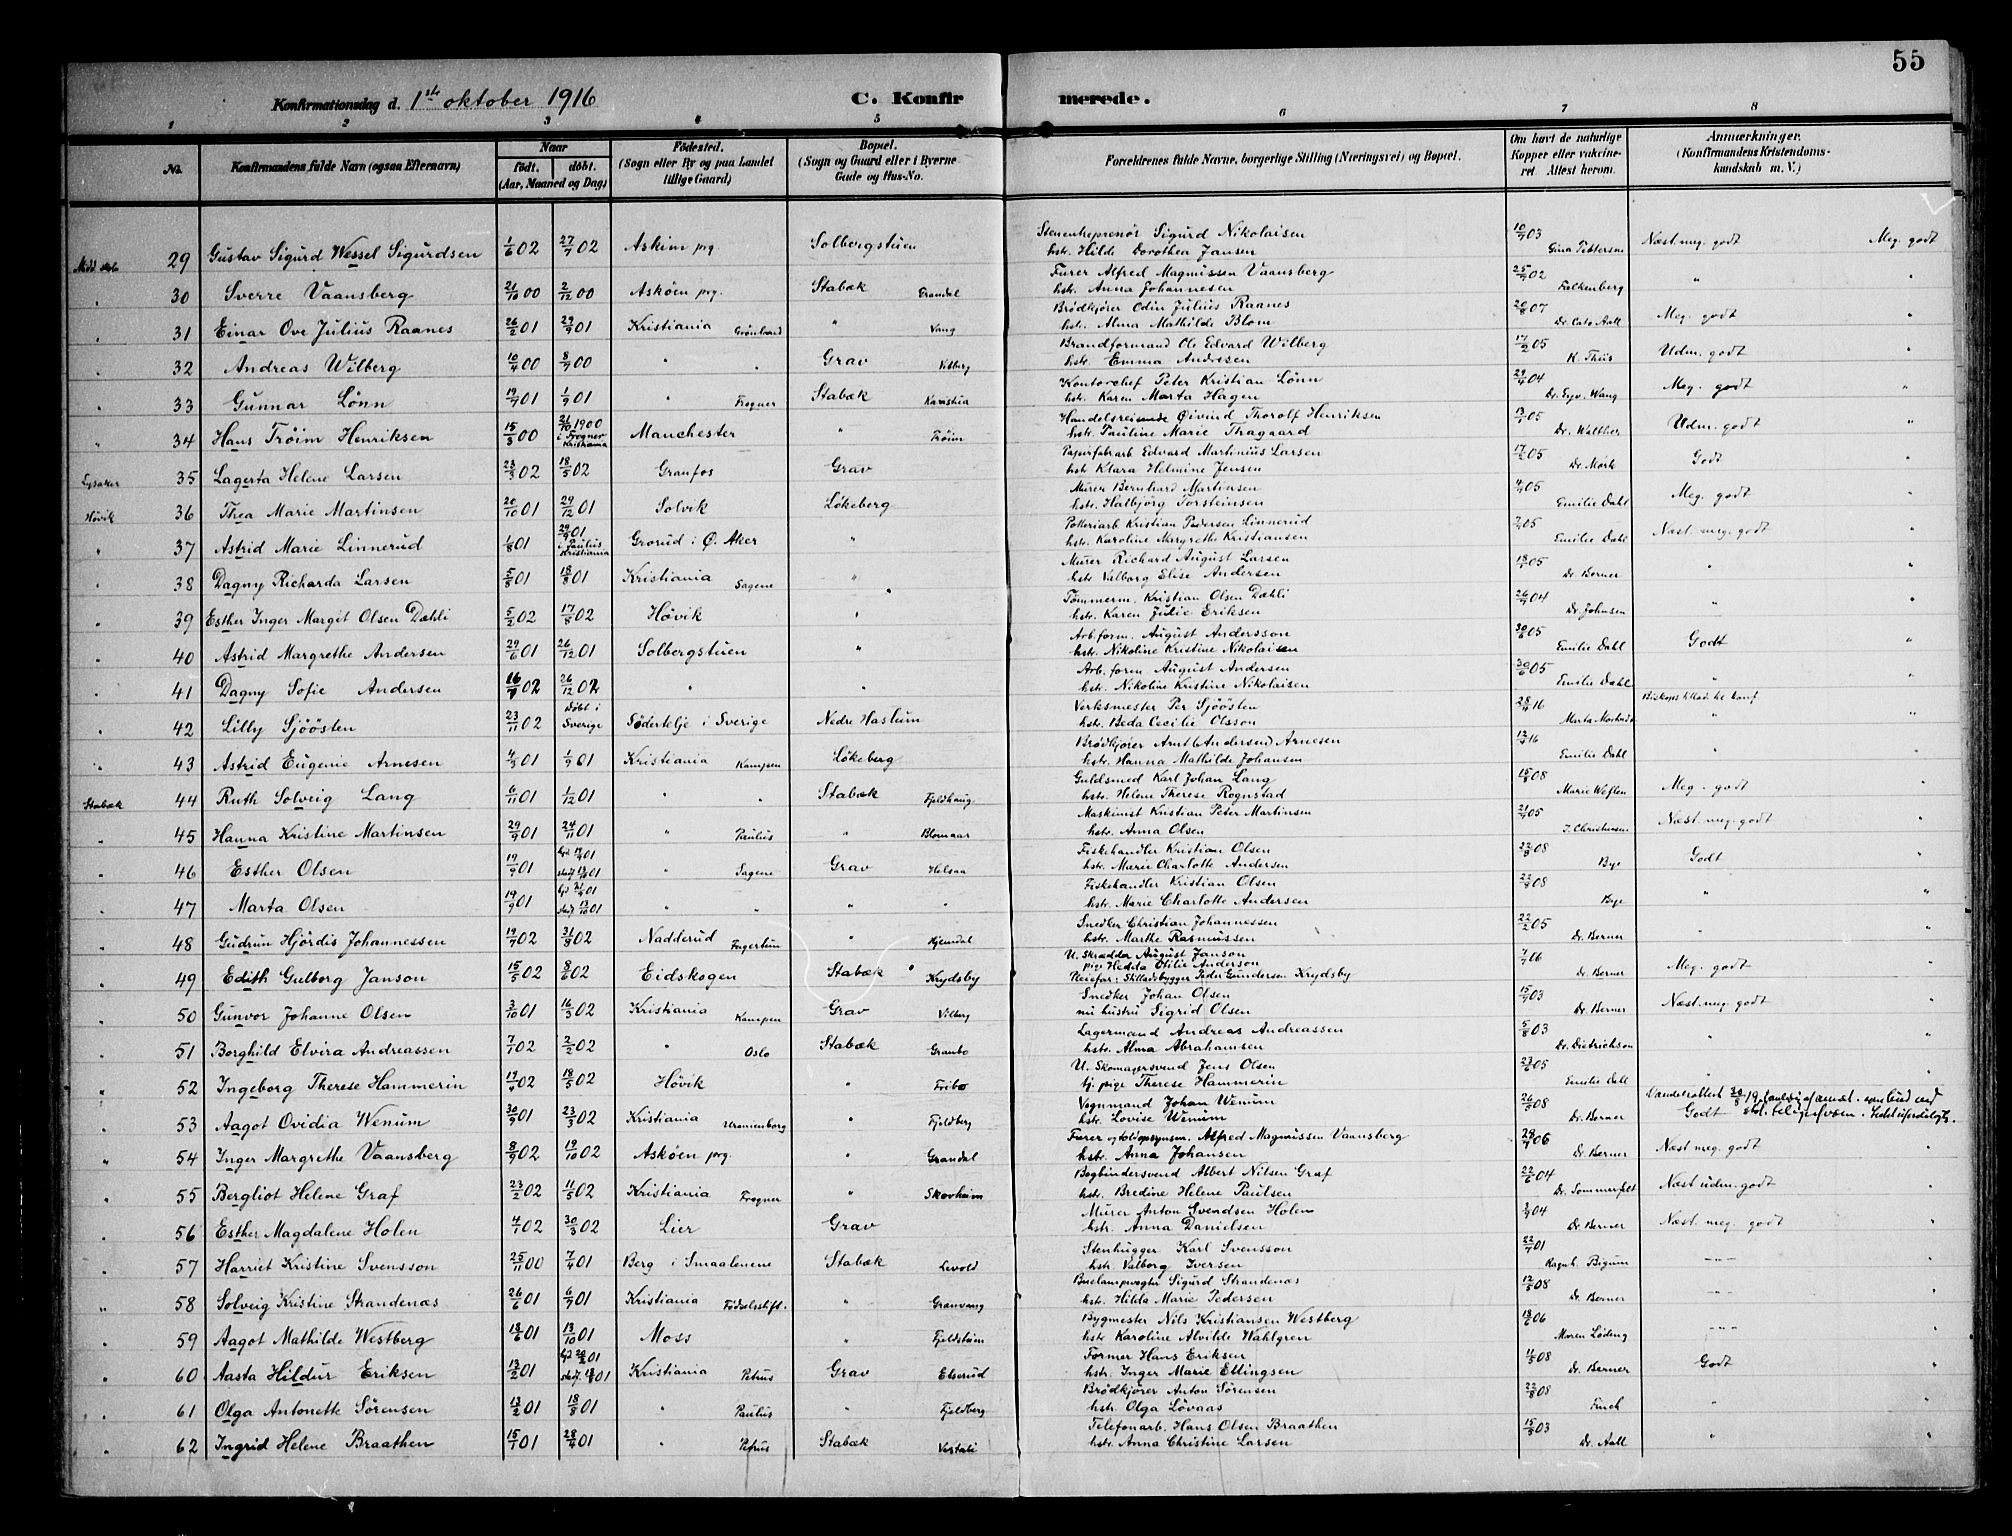 55
Konfirmationsdag d. 1ste oktober 1916 C. Konfir merede.
1 2 3 4 5 6 7 8
No. Konfirmandens fulde Navn (ogsaa Efternavn) Naar født. døbt. (Aar, Maaned og Dag) Fødested. (Sogn eller By og paa Landet tillige Gaard) Bopæl. (Sogn og Gaard eller i Byerne Gade og Hus-No. Forældrenes fulde Navne, borgerlige Stilling (Næringsvei) og Bopæl. Om havt de naturlige Kopper eller vakcineret. Attest herom. Anmærkninger. (Konfirmandens Kristendomskundskab m. V.)
29 Gustav Sigurd Wessel Sigurdsen 1/6 02 27/7 02 Askim prg. Solbergstuen Stenentreprenør Sigurd Nikolaisen hstr. Hilde Dorothea Jansen 10/9 03 Gina Pettersen Næst meg. godt Meg. godt
30 Sverre Vaansberg 21/10 00 2/12 00 Askøen prg. Stabæk Grandal Furer Alfred Magnussen Vaansberg hstr. Anna Johannesen 25/9 02 Falkenberg "
31 Einar Ove Julius Raanes 26/2 01 29/9 01 Kristiania Grønland " Vang Brødkjører Odin Julius Raanes hstr. Alma Mathilde Blom 20/8 07 Dr. Cato Aall Meg. godt
32 Andreas Wilberg 10/4 00 8/7 00 " " Grav Vilberg Brandformand Ole Edvard Wilberg hstr. Emma Andresen 17/2 05 K. Thiis Udm. godt
33 Gunnar Lønn 19/7 01 1/9 01 " Frogner Stabæk Karistua Kontorchef Peter Kristian Lønn hstr. Karen Marta Hagen 29/4 04 Dr. Eyv. Wang Meg. godt "
34 Hans Trøim Henriksen 15/3 00 21/10 1900 i Frogner Kristiania Manchester " Trøim Handelsreisende Øivind Thorolf Henriksen hstr. Pauline Marie Thagaard 13/1 05 Dr. Walther Udm. godt "
Lysaker 35 Lagerta Helene Larsen 23/3 02 18/5 02 Granfos Grav Papirfabarb Edvard Martinius Larsen hstr Klara Helmine Jensen 17/2 05 Dr. Mørk Godt
Høvik 36 Thea Marie Martinsen 20/10 01 29/12 01 Solvik Løkeberg Murer Bernhard Martinsen hstr. Halbjørg Torsteinsen 4/7 05 Emilie Dahl Meg. godt "
37 Astrid Marie Linnerud 1/8 01 29/9 01 i Paulus Kristiania Grorud i Ø. Aker " Potteriarb Kristian Pedersen Linnerud hstr. Karoline Margrethe Kristiansen 7/7 05 Emilie Dahl Næst meg. godt
38 Dagny Richarda Larsen 5/8 01 18/8 01 Kristiania Sagene " Murer Richard August Larsen hstr. Valborg Elise Andersen 18/9 05 Dr. Berner "
39 Esther Inger Margit Olsen Dæhli 5/2 02 17/8 02 Høvik " Tømmerm. Kristian Olsen Dæhli hstr. Karen Julie Eriksen 26/9 04 Dr. Johnsen " "
40 Astrid Margrethe Andersen 29/6 01 26/12 01 Solbergstuen " Arb.form. August Andersson hstr. Nikoline Kristine Nikolaisen 30/6 05 Emilie Dahl Godt "
41 Dagny Sofie Andersen 16/9 02 26/12 02 " " Arb.form August Andersen hstr. Nikoline Kristine Nikolaisen 30/6 05 Emilie Dahl
42 Lilly Sjöösten 23/11 02 Døbt i Sverige Södertelje i Sverige Nedre Haslum Verksmester Per Sjöösten hstr. Beda Cecilie Olsson 28/4 16 Marta Bispens tillad. til konf. "
43 Astrid Eugenie Arnesen 4/3 01 1/9 01 Kristiania Kampen Løkeberg Brødkjører Arnt (Andersen) Arnesen hstr. Hanna Mathilde Johansen 12/9 16 Emilie Dahl " "
Stabæk 44 Ruth Solveig Lang 6/11 01 1/12 01 " " Stabæk Fjeldhaug. Guldsmed Karl Johan Lang hstr. Helene Therese Rognstad 15/8 08 Marie Weflen Meg. godt
45 Hanna Kristine Martinsen 29/9 01 24/11 01 " Paulus " Blomaar Maskinist Kristian Peter Martinsen hstr. Anna Olsen 21/9 05 J. Christensen Næst meg. godt "
46 Esther Olsen 19/9 01 stadf. 13/10 01 " Sagene Grav Helsaa Fiskehandler Kristian Olsen hstr. Marie Charlotte Andersen 22/8 08 Bye Godt "
47 Marta Olsen 19/9 01 stadf 13/10 01 " " " " Fiskehandler Kristian Olsen hstr. Marie Charlotte Andersen 22/8 08 Bye " "
48 Gudrun Hjørdis Johannessen 19/7 02 31/8 02 Nadderud Fagertun " Hjemdal Snedker Christian Johannessen hstr. Marthe Rasmussen 22/2 05 Dr. Berner " "
49 Edith Gulborg Janson 15/5 02 8/6 02 Eidskogen Stabæk Krydsby U. Skrædder August Janson pige Hedda Otilie Anderson Pleiefar: Stilladsbygger Peder Gundersen Krydsby 7/7 16 Dr. Berner Meg. godt
50 Gunvor Johanne Olsen 3/10 01 16/3 02 Kristiania Kampen Grav Vilberg Snedker Johan Olsen nu hustru Sigrid Olsen 15/9 03 Dr. Berner Næst meg. godt "
51 Borghild Elvira Andreassen 7/1 02 2/2 02 " Oslo Stabæk Granbo Lagermand Andreas Andreassen hstr. Alma Abrahamsen 5/8 03 Dr. Dietrichson " "
52 Ingeborg Therese Hammerin 19/4 02 18/5 02 Høvik " Fribo U. Skomagersvend Jens Olsen tj. pige Therese Hammerin 23/6 05 Emilie Dall "
53 Aagot Ovidia Wenum 30/9 01 23/3 02 Kristiania Uranienborg " Fjeldberg Vognmand Johan Wenum hstr. Lovise Wenum 26/5 08 Dr. Berner Vandelsattest Godt
54 Inger Margrethe Vaansberg 8/9 02 19/10 02 Askøen prg. " Grandal Furer og toldopsynsm. Alfred Magnussen Vaansberg hstr. Anna Johansen 28/7 06 Dr. Berner Næst meg. godt
55 Bergliot Helene Graf 23/2 02 11/5 02 Kristiania Frogner " Skovheim Bogbindersvend Albert Nilsen Graf hstr. Bredine Helene Paulsen 22/6 04 Dr. Sommerfelt Næst udm. godt "
56 Esther Magdalene Holen 4/1 02 30/3 02 Lier Grav Murer Anton Svendsen Holen hstr. Anna Danielsen 3/9 04 Dr. Berner Næst. meg. godt "
57 Harriet Kristine Svensson 25/11 00 7/4 01 Berg i Smaalenene Stabæk Levold Stenhugger Karl Svensson hstr. Valborg Iversen 22/7 01 Ragnh. Bigum "
58 Solveig Kristine Strandenæs 26/6 01 6/7 01 Kristiania Fødselsstift. " Granvang Buelampvogter Sigurd Strandenæs hstr. Hilda Marie Pedersen 12/5 08 Dr. Berner "
59 Aagot Mathilde Westberg 18/6 01 13/10 01 Moss " Fjeldstuen Bygmester Nils Kristiansen Westberg hstr Karoline Alvilde Wahlgren 18/6 06 Maren Løding "
60 Aasta Hildur Eriksen 13/2 01 Kristiania Petrus Grav Elserud Former Hans Eriksen hstr. Inger Marie Ellingsen 11/5 08 Dr. Berner Godt "
61 Olga Antonette Sørensen 13/2 01 18/8 01 " Paulus " Fjeldberg Brødkjører Anton Sørensen hstr. Olga Løvaas 22/8 08 Finch " "
62 Ingrid Helene Braathen 15/1 01 28/4 01 " Petrus Stabæk Vestali Telefonarb. Hans Olsen Braathen hstr. Anna Christine Larsen 15/5 03 Dr. Aall " "